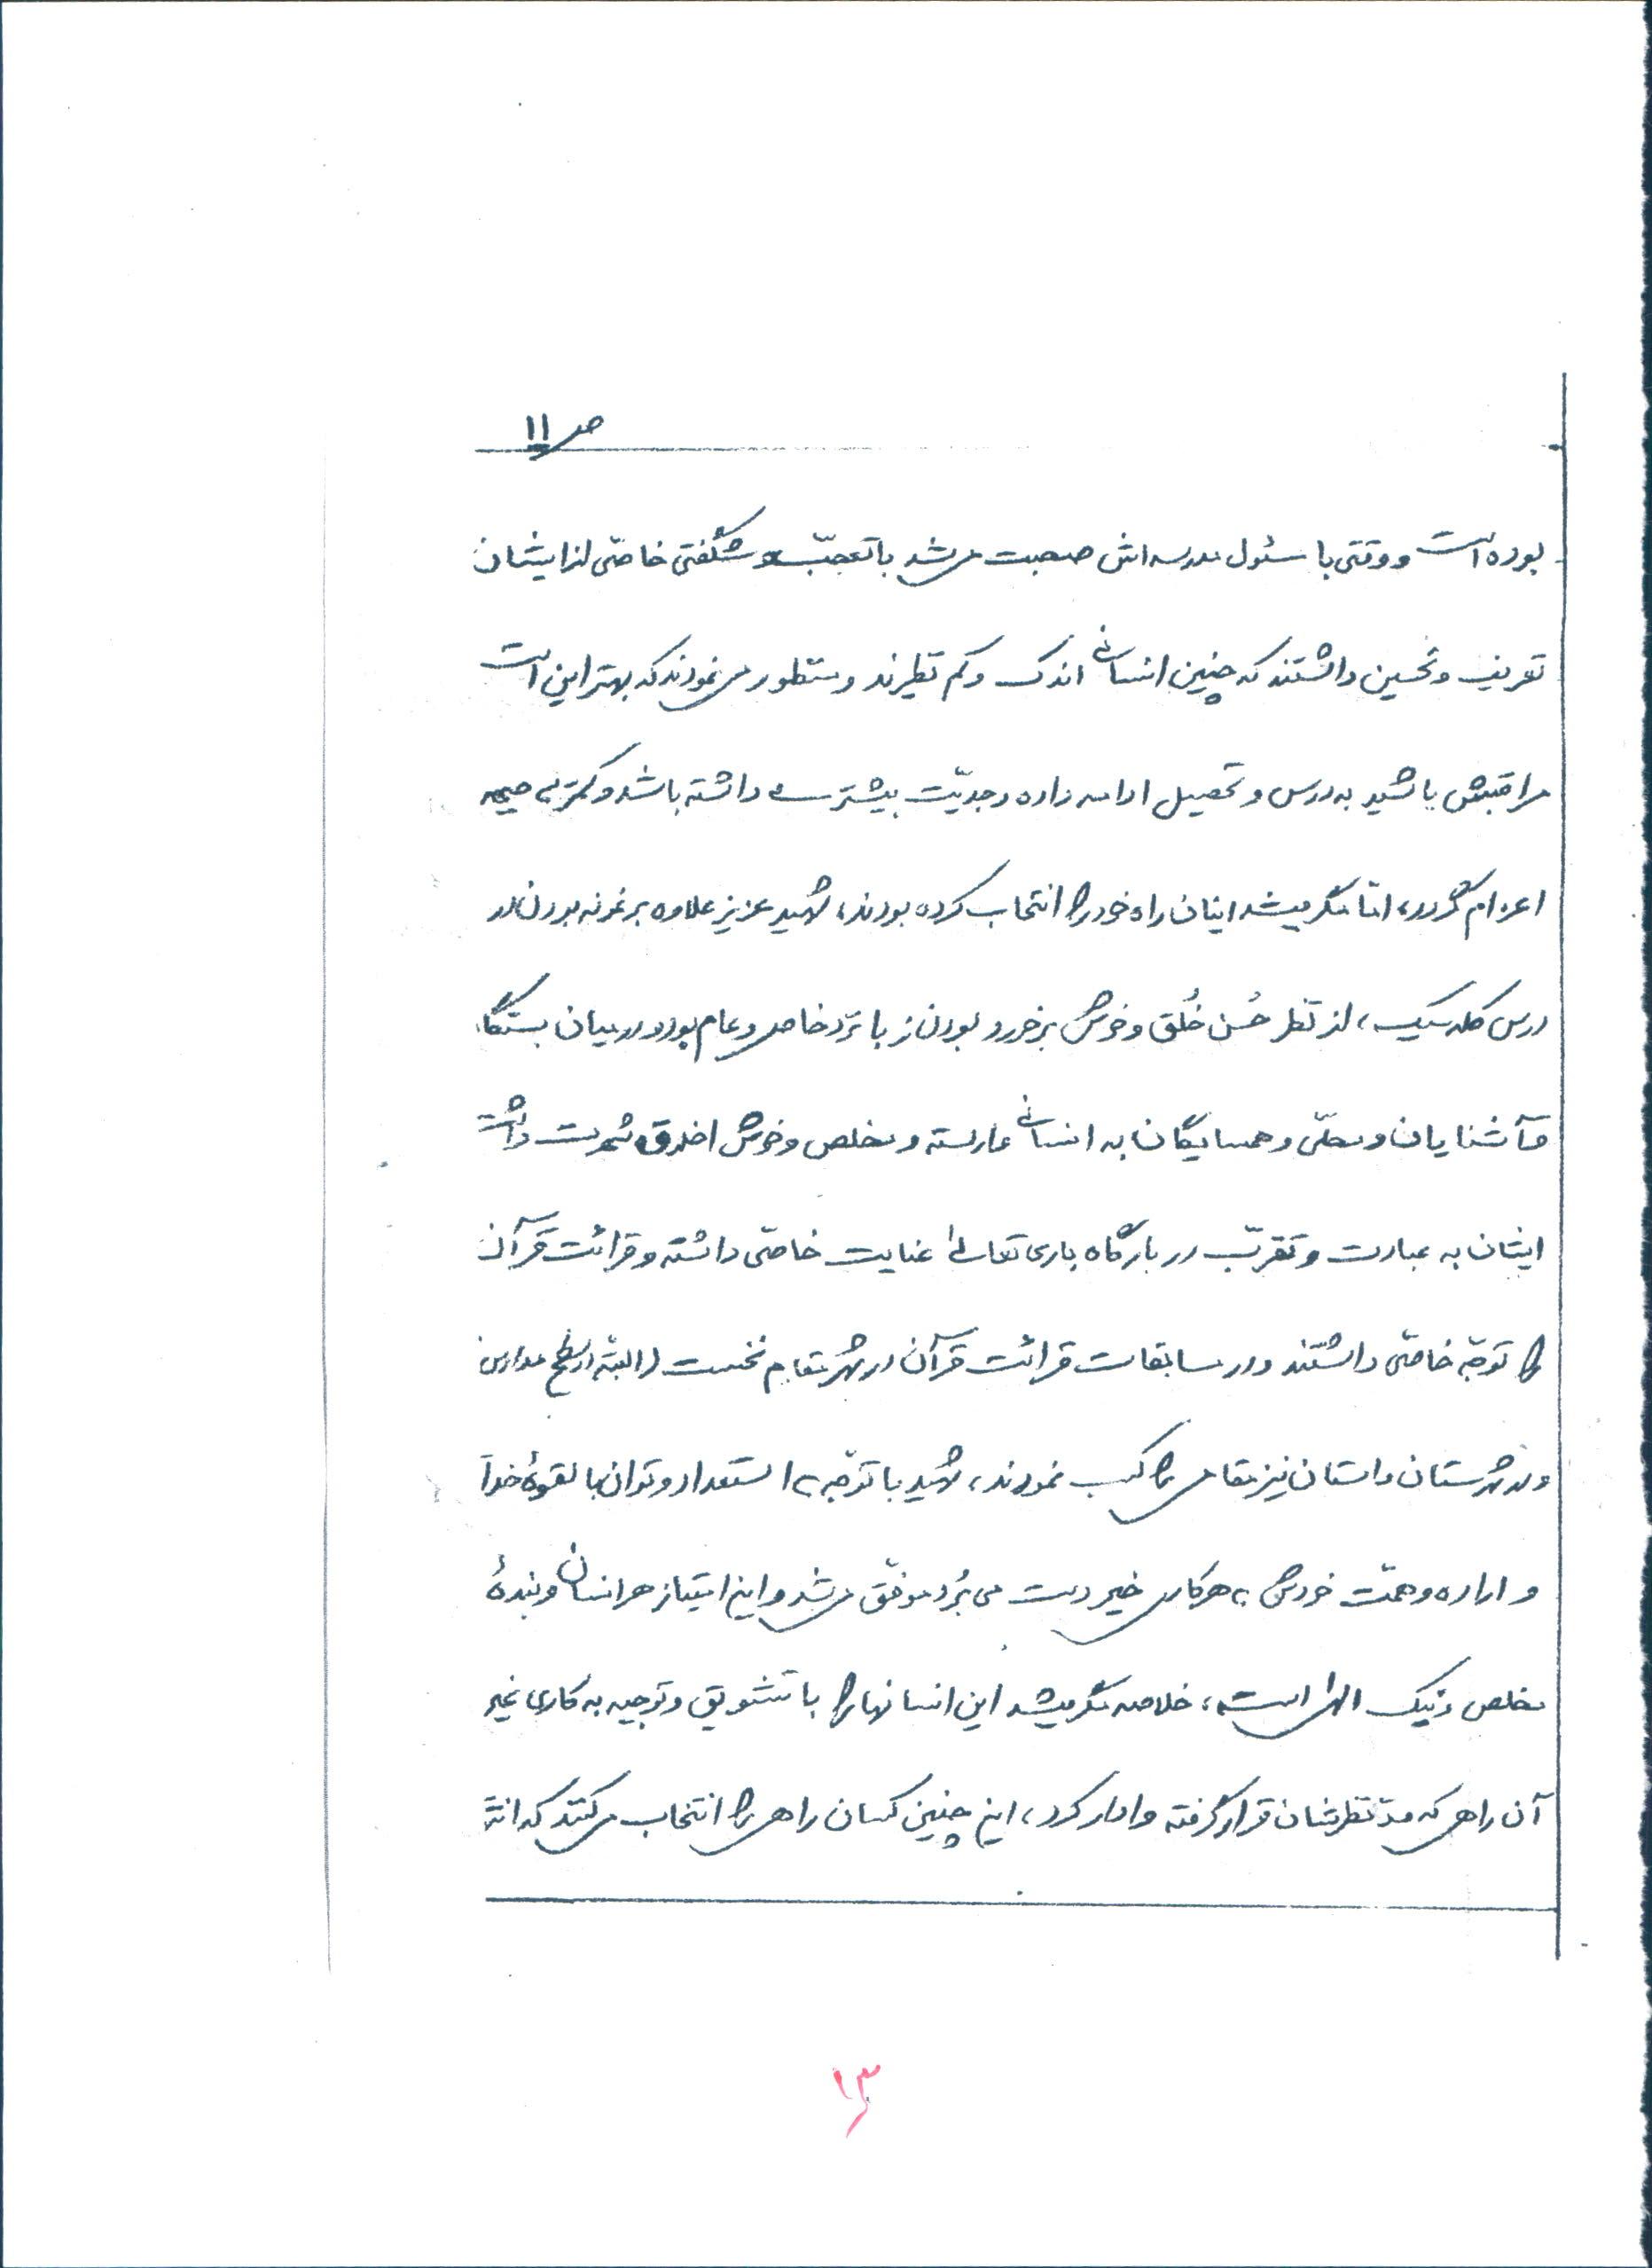 ص ۱۱
بوده است و وقتی با مسئول مدرسه‌اش صحبت می‌شد با تعجّب و شگفتی خاصّی از ایشان
تعریف و تحسین داشتند که چنین انسانی اندک و کم نظیرند و منظور می‌نمودند که بهتر این است
مراقبش باشید به درس و تحصیل ادامه داده و جدیّت بیشتری داشته باشد و کمتر به جبهه
اعزام گردد، امّا مگر میشد اینان راه خود را انتخاب کرده بودند، شهید عزیز علاوه بر نمونه بودن در
درس کلاسیک، از نظر حُسن خُلق و خوش برخورد بودن زبانزد خاص و عام بود در میان بستگان
و آشنایان و محلّی و همسایگان به انسانی وارسته و مخلص و خوش اخلاق شهرت داشت
ایشان به عبادت و تقرّب در بارگاه باری تعالی عنایت خاصّی داشته و قرائت قرآن
را توجّه خاصّی داشتند و در مسابقات قرائت قرآن در شهر مقام نخست (البتّه در سطح مدارس
و در شهرستان و استان نیز مقامی را کسب نمودند، شهید با توجّه به استعداد و توان بالقوهٔ خدا
و اراده و همّت خودش به هر کار خیر دست می‌بُرد موفّق می‌شد و این امتیاز هر انسان و بندهٔ
مخلص و نیک الهی است، خلاصه مگر میشد این انسانها را با تشویق و توجیه به کاری غیر
آن راهی که مدّ نظرشان قرار گرفته وادار کرد، این چنین کسان راهی را انتخاب می‌کنند که
۱۳